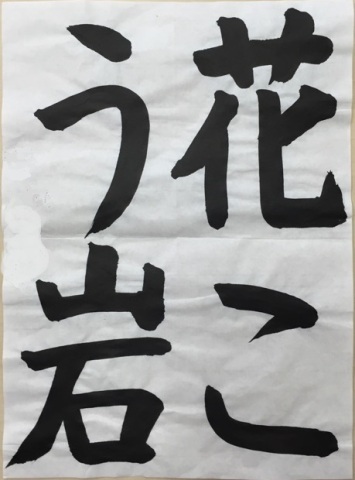 花こ
う岩